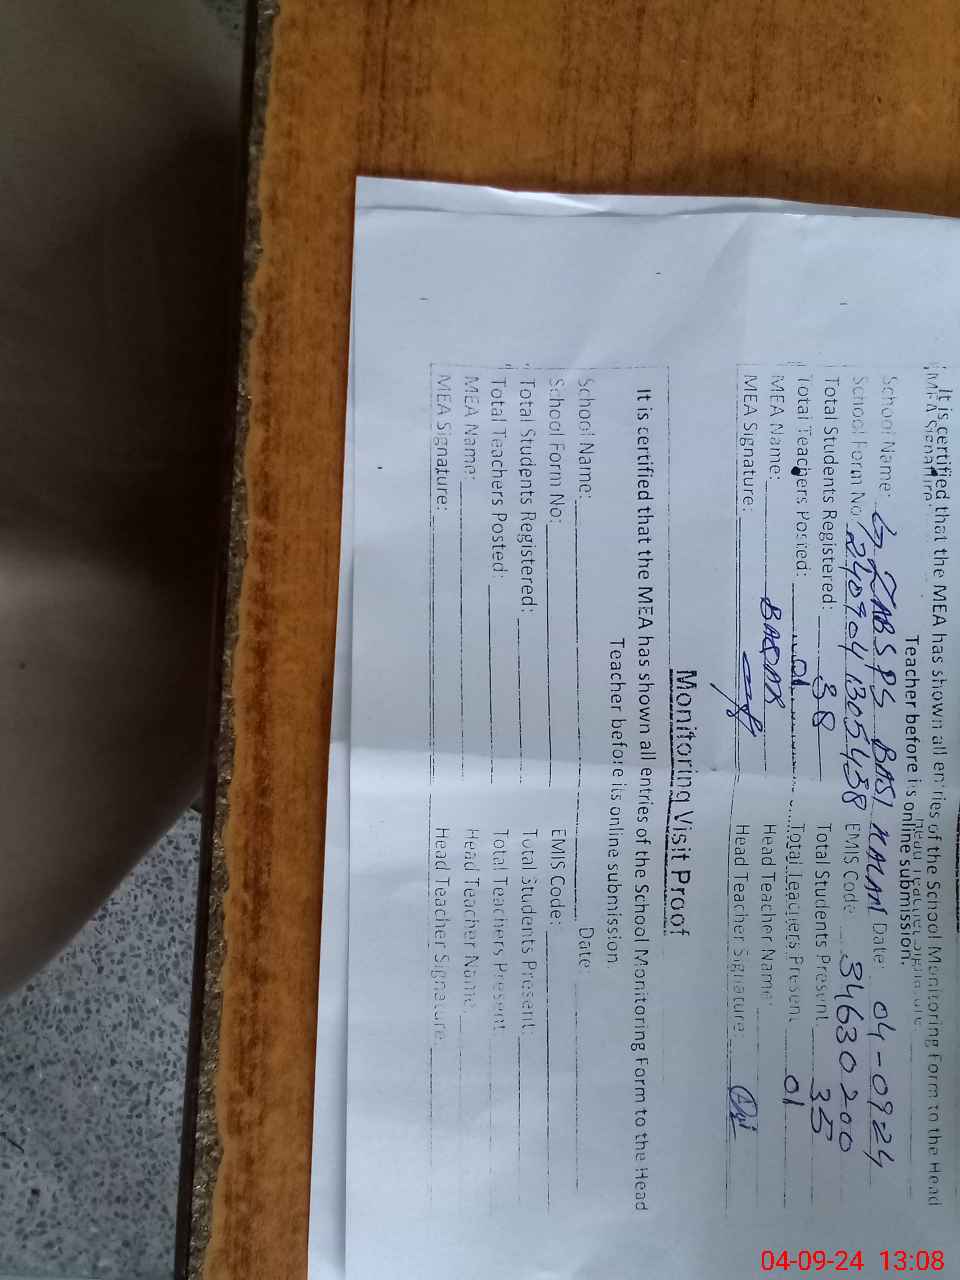 It is certified that the MEA has shown all entries of the School Monitoring Form to the Head
MEA Signature:
Teacher before its online submission.
School Name: ZABSPS BASI KALAN Date: 04-0924
School Form No: 2409041305438 EMIS Code 34630200
Total Students Registered: 38 Total Students Present 35
Total Teachers Posted: 01 Total Teachers Present 01
MEA Name: BABAR Head Teacher Name:
MEA Signature: Head Teacher Signature:
Monitoring Visit Proof
It is certified that the MEA has shown all entries of the School Monitoring Form to the Head
Teacher before its online submission.
School Name: Date:
School Form No: EMIS Code:
Total Students Registered: Total Students Present:
Total Teachers Posted: Total Teachers Present
MEA Name: Head Teacher Name
MEA Signature: Head Teacher Signature:
04-09-24 13:08